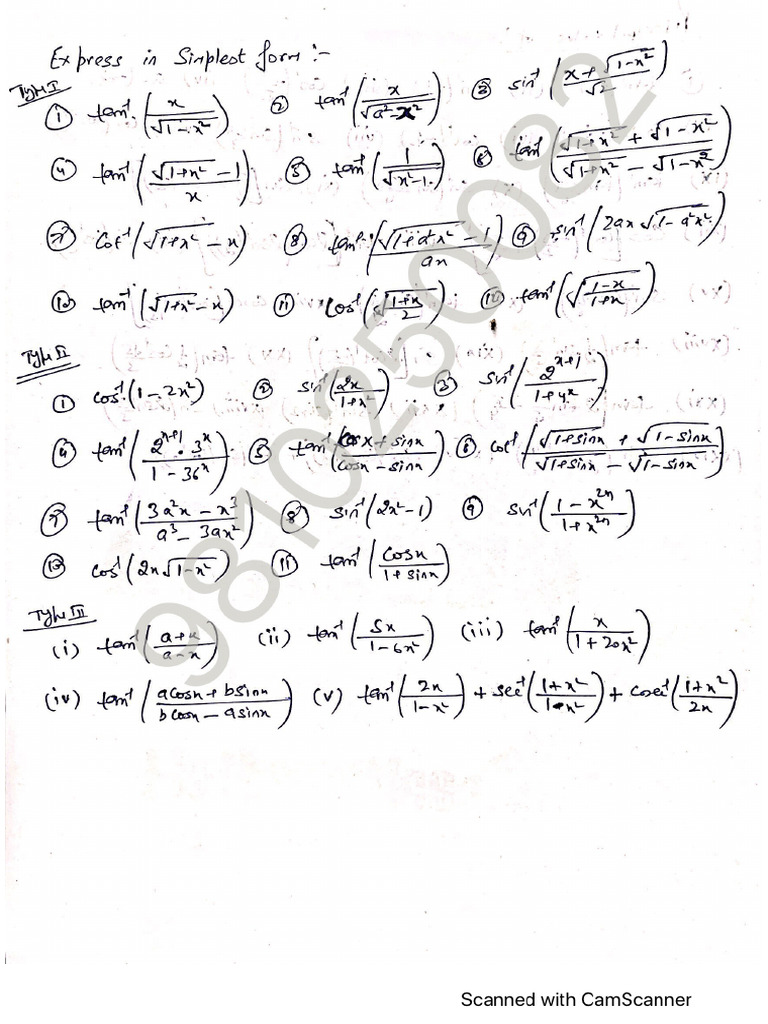 Express in Simplest form :-
Type I
① tan⁻¹(x/√(1-x²)) ② tan⁻¹(x/√(a²-x²)) ③ sin⁻¹((x+√(1-x²))/√2)
④ tan⁻¹((√(1+x²) - 1)/x) ⑤ tan⁻¹(1/√(x²-1)) ⑥ tan⁻¹((√(1+x²) + √(1-x²))/(√(1+x²) - √(1-x²)))
⑦ Cot⁻¹(√(1+x²) - x) ⑧ tan⁻¹((√(1+a²x²) - 1)/ax) ⑨ sin⁻¹(2ax√(1-a²x²))
⑩ tan⁻¹(√(1+x²) - x) ⑪ Cos⁻¹(√((1+x)/2)) ⑫ tan⁻¹(√((1-x)/(1+x)))
Type II
① cos⁻¹(1-2x²) ② sin⁻¹(2x/(1+x²)) ③ sin⁻¹(2ˣ⁺¹/(1+4ˣ))
④ tan⁻¹((2ˣ⁺¹ . 3ˣ)/(1-36ˣ)) ⑤ tan⁻¹((cosx + sinx)/(cosx - sinx)) ⑥ cot⁻¹((√(1+sinx) + √(1-sinx))/(√(1+sinx) - √(1-sinx)))
⑦ tan⁻¹((3a²x - x³)/(a³ - 3ax²)) ⑧ sin⁻¹(2x²-1) ⑨ sin⁻¹((1-x²ⁿ)/(1+x²ⁿ))
⑩ cos⁻¹(2x√(1-x²)) ⑪ tan⁻¹(cosx/(1+sinx))
Type III
(i) tan⁻¹((a+x)/(a-x)) (ii) tan⁻¹(5x/(1-6x²)) (iii) tan⁻¹(x/(1+20x²))
(iv) tan⁻¹((acosx + bsinx)/(bcosx - asinx)) (v) tan⁻¹(2x/(1-x²)) + sec⁻¹((1+x²)/(1-x²)) + cosec⁻¹((1+x²)/2x)
9810250082
Scanned with CamScanner